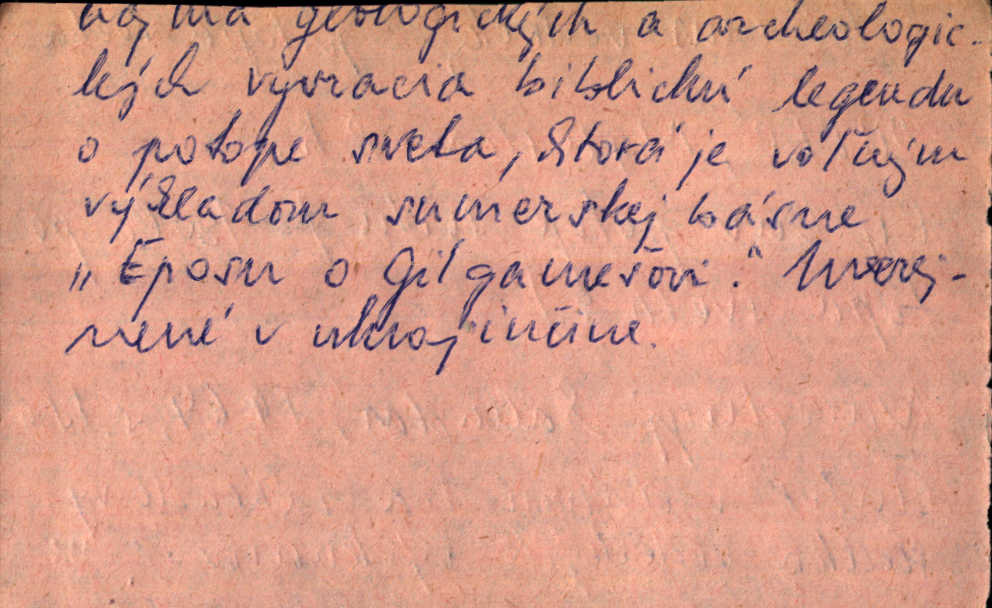 najmä geologických a archeologic-
kých vyvracia biblickú legendu
o potope sveta, ktorá je voľným
výkladom sumerskej básne
„Eposu o Gilgamešovi." Uverej-
nené v ukrajinčine.